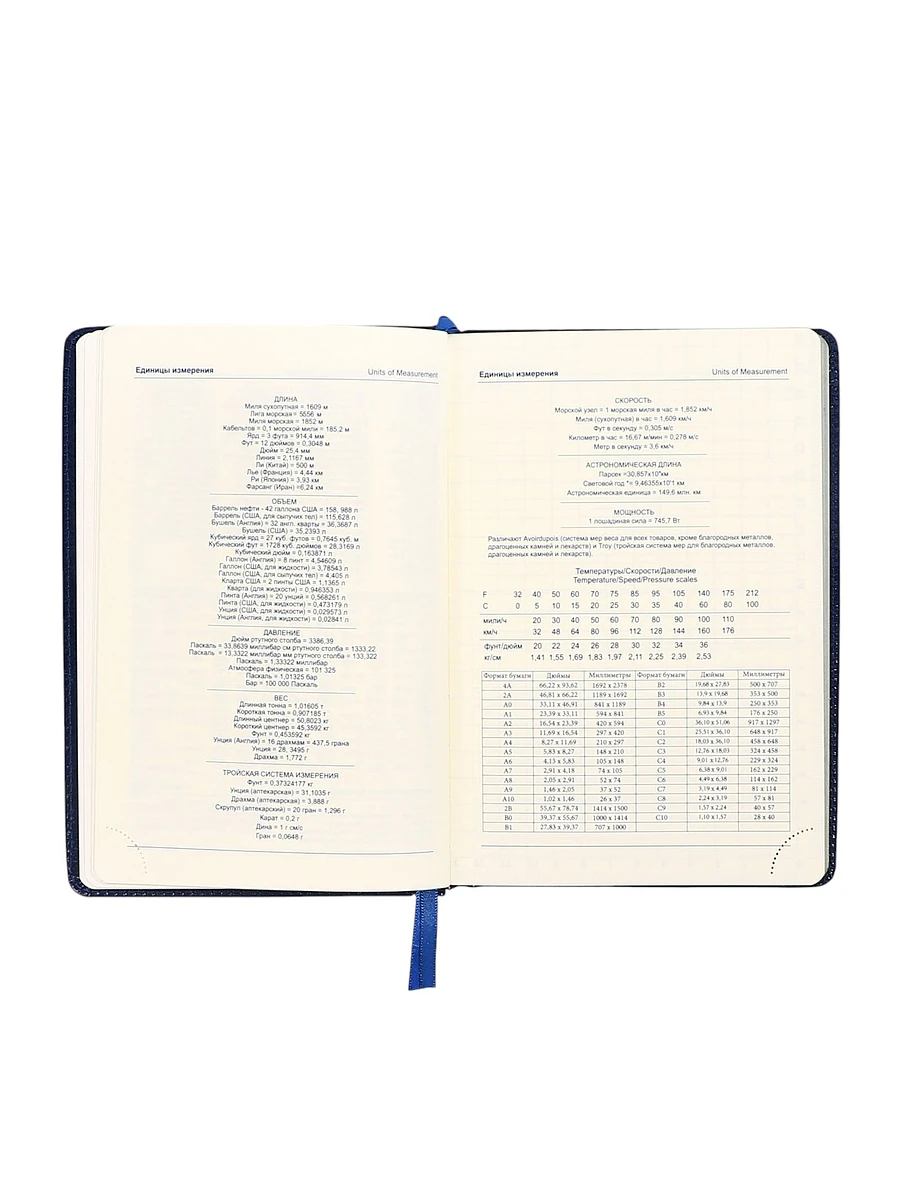 Единицы измерения Units of Measurement
ДЛИНА
Миля сухопутная = 1609 м
Лига морская = 5556 м
Миля морская = 1852 м
Кабельтов = 0,1 морской мили = 185,2 м
Ярд = 3 фута = 914,4 мм
Фут = 12 дюймов = 0,3048 м
Дюйм = 25,4 мм
Линия = 2,1167 мм
Ли (Китай) = 500 м
Лье (Франция) = 4,44 км
Ри (Япония) = 3,93 км
Фарсанг (Иран) =6,24 км
ОБЪЕМ
Баррель нефти - 42 галлона США = 158, 988 л
Баррель (США, для сыпучих тел) = 115,628 л
Бушель (Англия) = 32 англ. кварты = 36,3687 л
Бушель (США) = 35,2393 л
Кубический ярд = 27 куб. футов = 0,7645 куб. м
Кубический фут = 1728 куб. дюймов = 28,3169 л
Кубический дюйм = 0,163871 л
Галлон (Англия) = 8 пинт = 4,54609 л
Галлон (США, для жидкости) = 3,78543 л
Галлон (США, для сыпучих тел) = 4,405 л
Кларта США = 2 пинты США = 1,1365 л
Кварта (для жидкости) = 0,946353 л
Пинта (Англия) = 20 унций = 0,568261 л
Пинта (США, для жидкости) = 0,473179 л
Унция (США, для жидкости) = 0,029573 л
Унция (Англия, для жидкости) = 0,02841 л
ДАВЛЕНИЕ
Дюйм ртутного столба = 3386,39
Паскаль = 33,8639 миллибар см ртутного столба = 1333,22
Паскаль = 13,3322 миллибар мм ртутного столба = 133,322
Паскаль = 1,33322 миллибар
Атмосфера физическая = 101 325
Паскаль = 1,01325 бар
Бар = 100 000 Паскаль
ВЕС
Длинная тонна = 1,01605 г
Короткая тонна = 0,907185 г
Длинный центнер = 50,8023 кг
Короткий центнер = 45,3592 кг
Фунт = 0,453592 кг
Унция (Англия) = 16 драхмам = 437,5 грана
Унция = 28, 3495 г
Драхма = 1,772 г
ТРОЙСКАЯ СИСТЕМА ИЗМЕРЕНИЯ
Фунт = 0,37324177 кг
Унция (аптекарская) = 31,1035 г
Драхма (аптекарская) = 3,888 г
Скрупул (аптекарский) = 20 гран = 1,296 г
Карат = 0,2 г
Дина = 1 г см/с
Гран = 0,0648 г
Единицы измерения Units of Measurement
СКОРОСТЬ
Морской узел = 1 морская миля в час = 1,852 км/ч
Миля (сухопутная) в час = 1,609 км/ч
Фут в секунду = 0,305 м/с
Километр в час = 16,67 м/мин = 0,278 м/с
Метр в секунду = 3,6 км/ч
АСТРОНОМИЧЕСКАЯ ДЛИНА
Парсек =30,857x10"км
Световой год "= 9,46355x10'1 км
Астрономическая единица = 149,6 млн. км
МОЩНОСТЬ
1 лошадиная сила = 745,7 Вт
Различают Avoirdupois (система мер веса для всех товаров, кроме благородных металлов,
драгоценных камней и лекарств) и Troy (тройская система мер для благородных металлов,
драгоценных камней и лекарств).
Температуры/Скорости/Давление
Temperature/Speed/Pressure scales
F 32 40 50 60 70 75 85 95 105 140 175 212
C 0 5 10 15 20 25 30 35 40 60 80 100
мили/ч 20 30 40 50 60 70 80 90 100 110
км/ч 32 48 64 80 96 112 128 144 160 176
фунт/дюйм 20 22 24 26 28 30 32 34 36
кг/см 1,41 1,55 1,69 1,83 1,97 2,11 2,25 2,39 2,53
Формат бумаги Дюймы Миллиметры Формат бумаги Дюймы Миллиметры
4A 66,22 x 93,62 1692 x 2378 B2 19,68 x 27,83 500 x 707
2A 46,81 x 66,22 1189 x 1692 B3 13,9 x 19,68 353 x 500
A0 33,11 x 46,91 841 x 1189 B4 9,84 x 13,9 250 x 353
A1 23,39 x 33,11 594 x 841 B5 6,93 x 9,84 176 x 250
A2 16,54 x 23,39 420 x 594 C0 36,10 x 51,06 917 x 1297
A3 11,69 x 16,54 297 x 420 C1 25,51 x 36,10 648 x 917
A4 8,27 x 11,69 210 x 297 C2 18,03 x 36,10 458 x 648
A5 5,83 x 8,27 148 x 210 C3 12,76 x 18,03 324 x 458
A6 4,13 x 5,83 105 x 148 C4 9,01 x 12,76 229 x 324
A7 2,91 x 4,18 74 x 105 C5 6,38 x 9,01 162 x 229
A8 2,05 x 2,91 52 x 74 C6 4,49 x 6,38 114 x 162
A9 1,46 x 2,05 37 x 52 C7 3,19 x 4,49 81 x 114
A10 1,02 x 1,46 26 x 37 C8 2,24 x 3,19 57 x 81
2B 55,67 x 78,74 1414 x 1500 C9 1,57 x 2,24 40 x 57
B0 39,37 x 55,67 1000 x 1414 C10 1,10 x 1,57 28 x 40
B1 27,83 x 39,37 707 x 1000